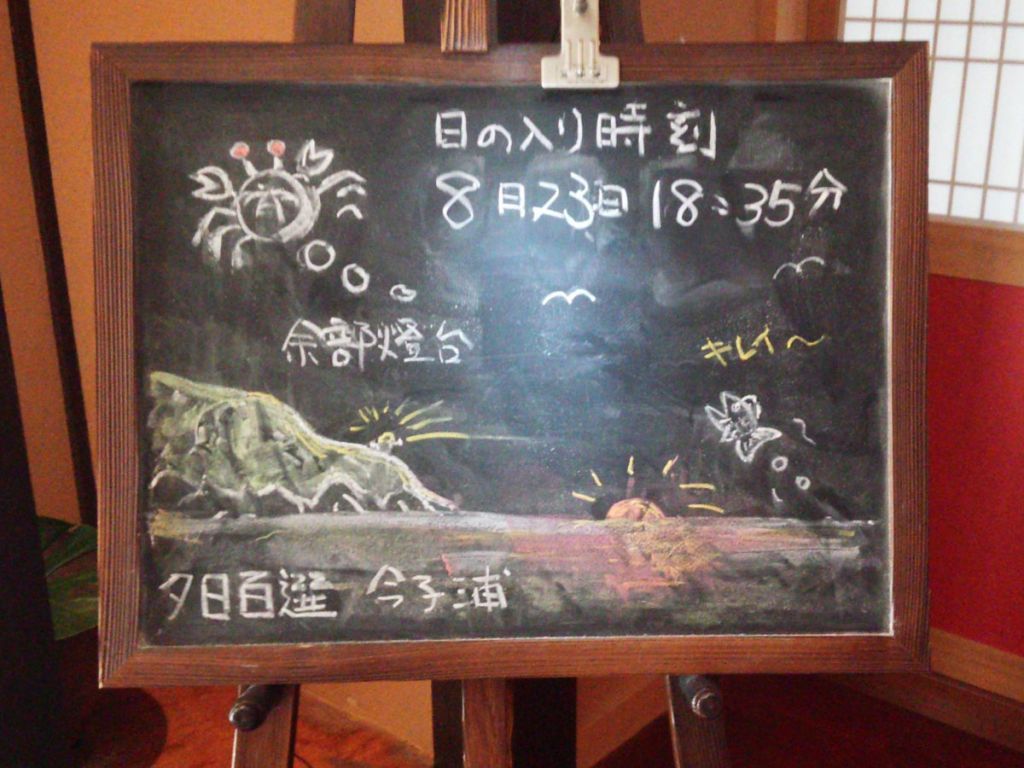 日の入り時刻
8月23日 18:35分
余部燈台
キレイ～
夕日百選 今子浦